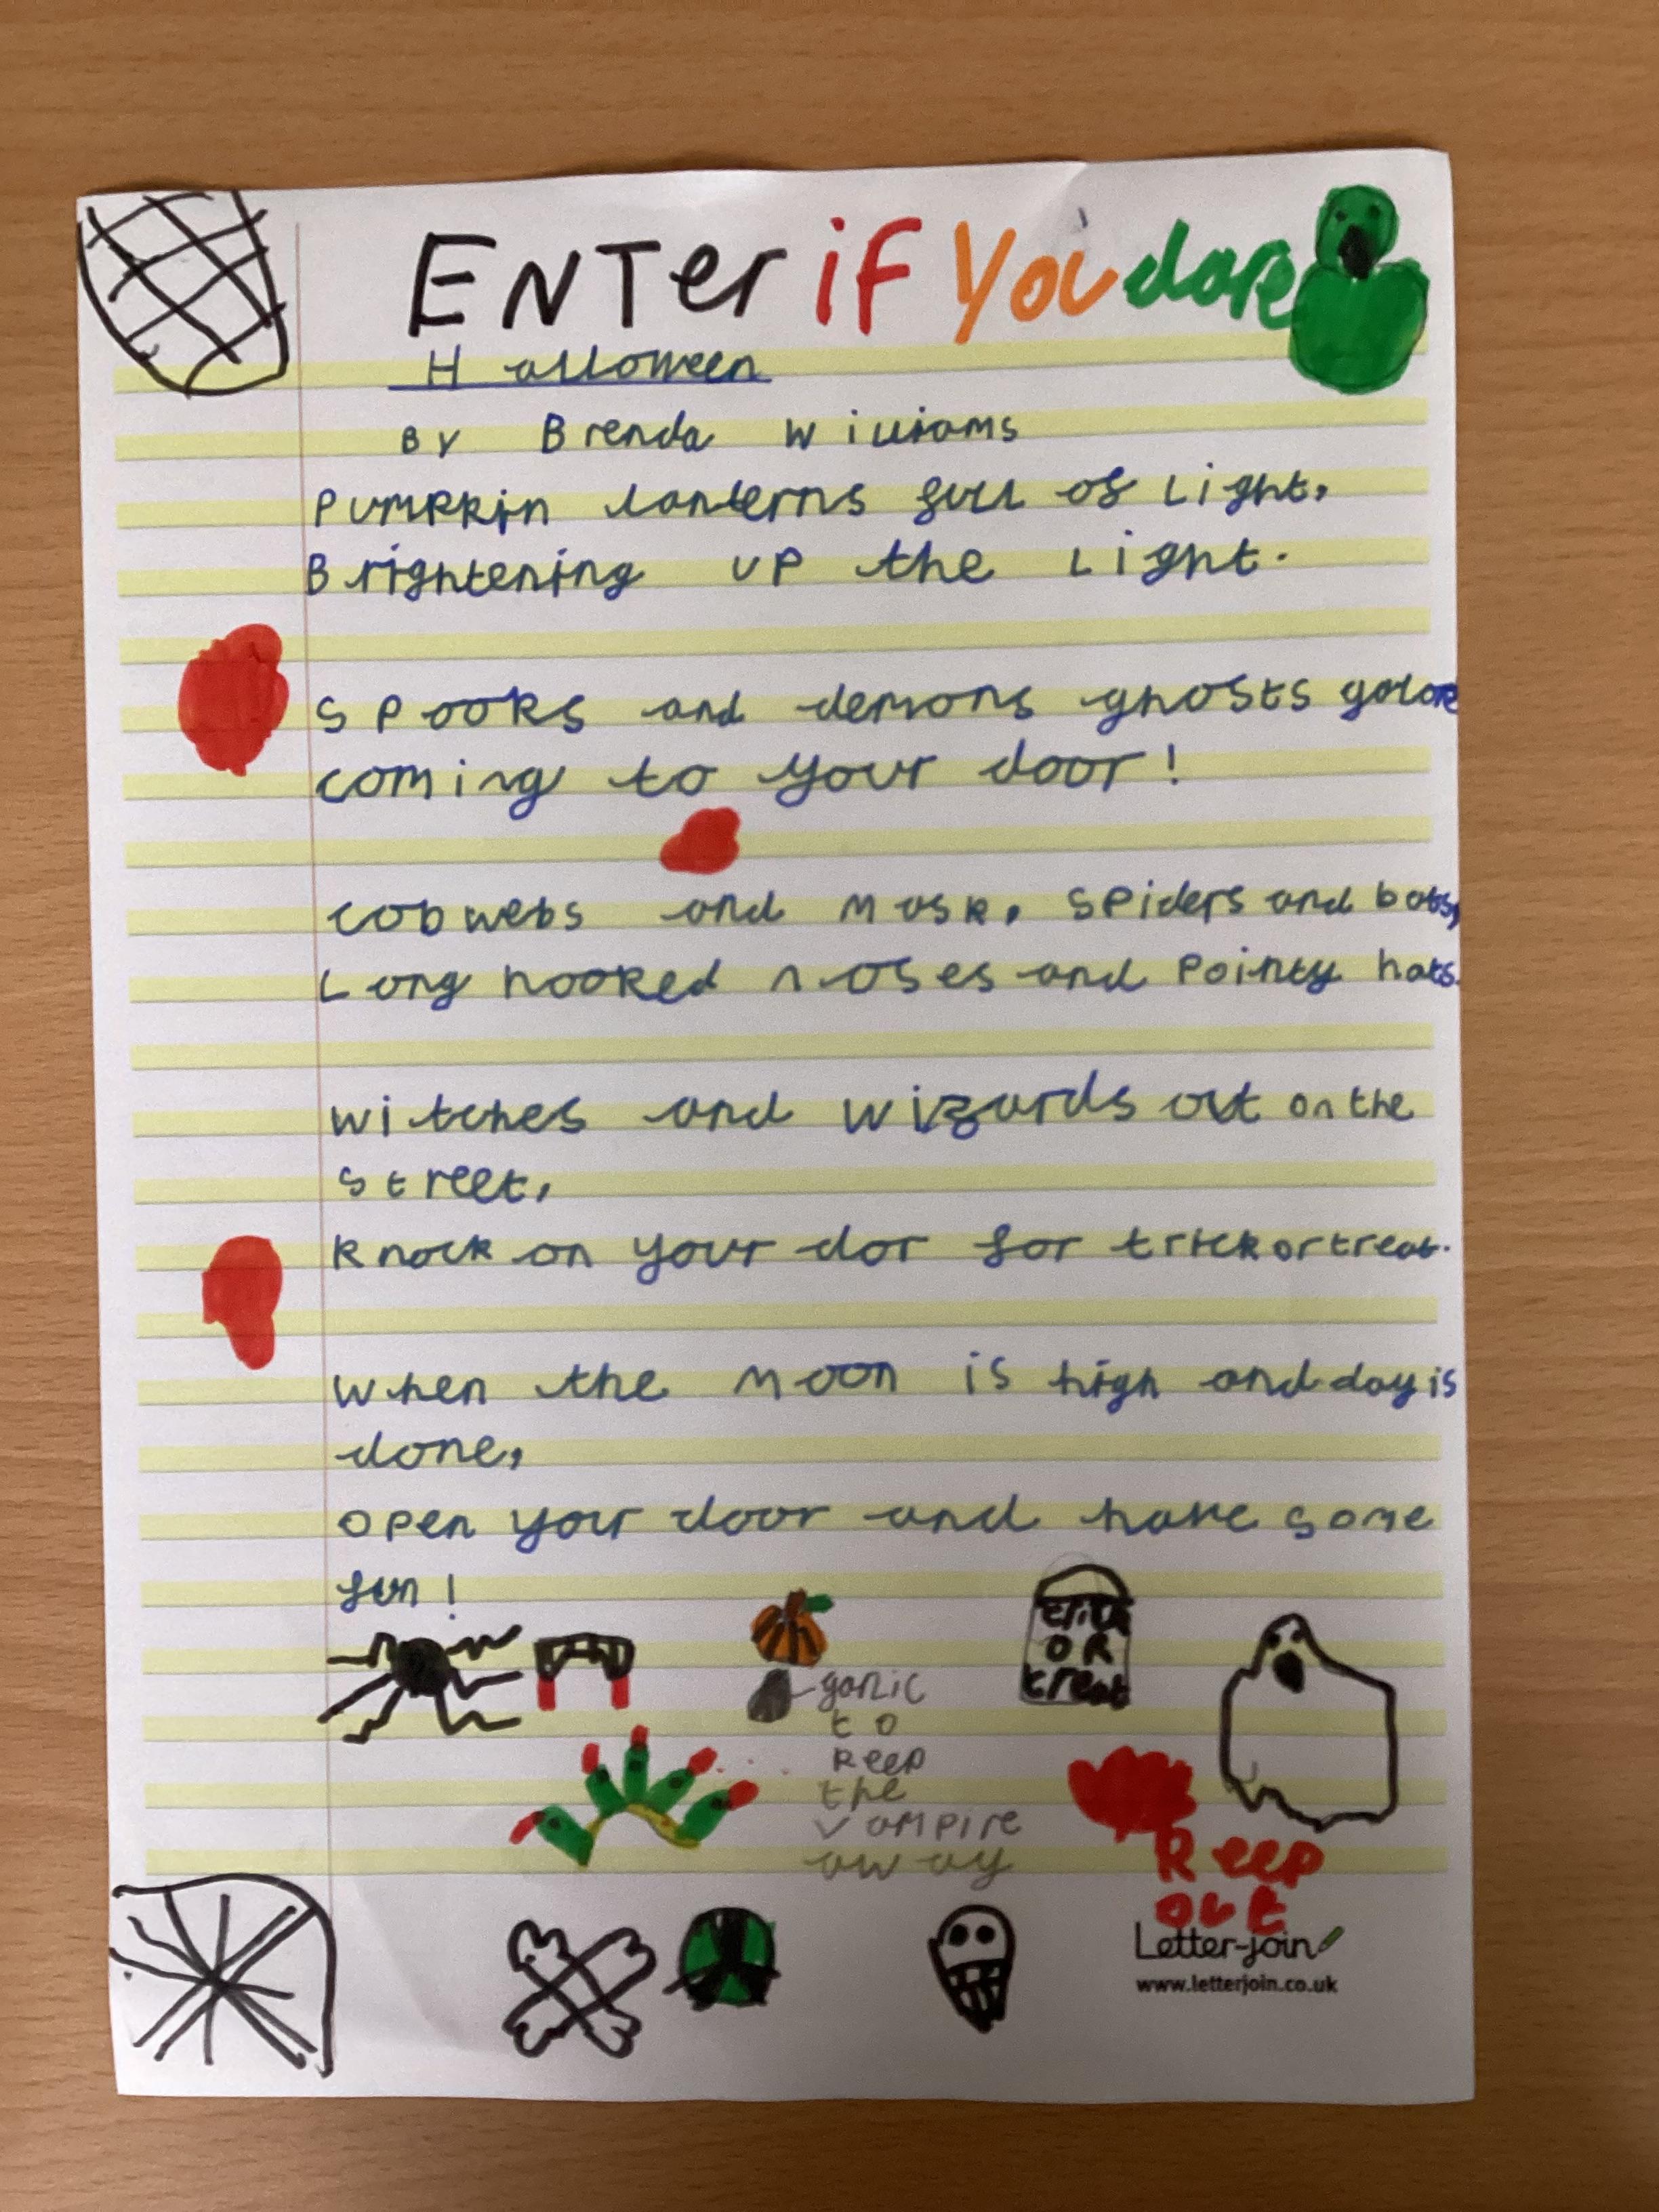 ENTer iF You dare
Halloween
By Brenda Williams
Pumpkin lanterns full of Light,
Brightening up the Light.
Spooks and demons ghosts galore
coming to your door!
cobwebs and mask, spiders and bats,
Long hooked noses and pointy hats.
witches and wizards out on the
street,
knock on your dor for trick or treat.
when the moon is high and day is
done,
open your door and have some
fun!
trick
OR
treat
garlic
to
keep
the
vampire
away
keep
out
Letter-join
www.letterjoin.co.uk